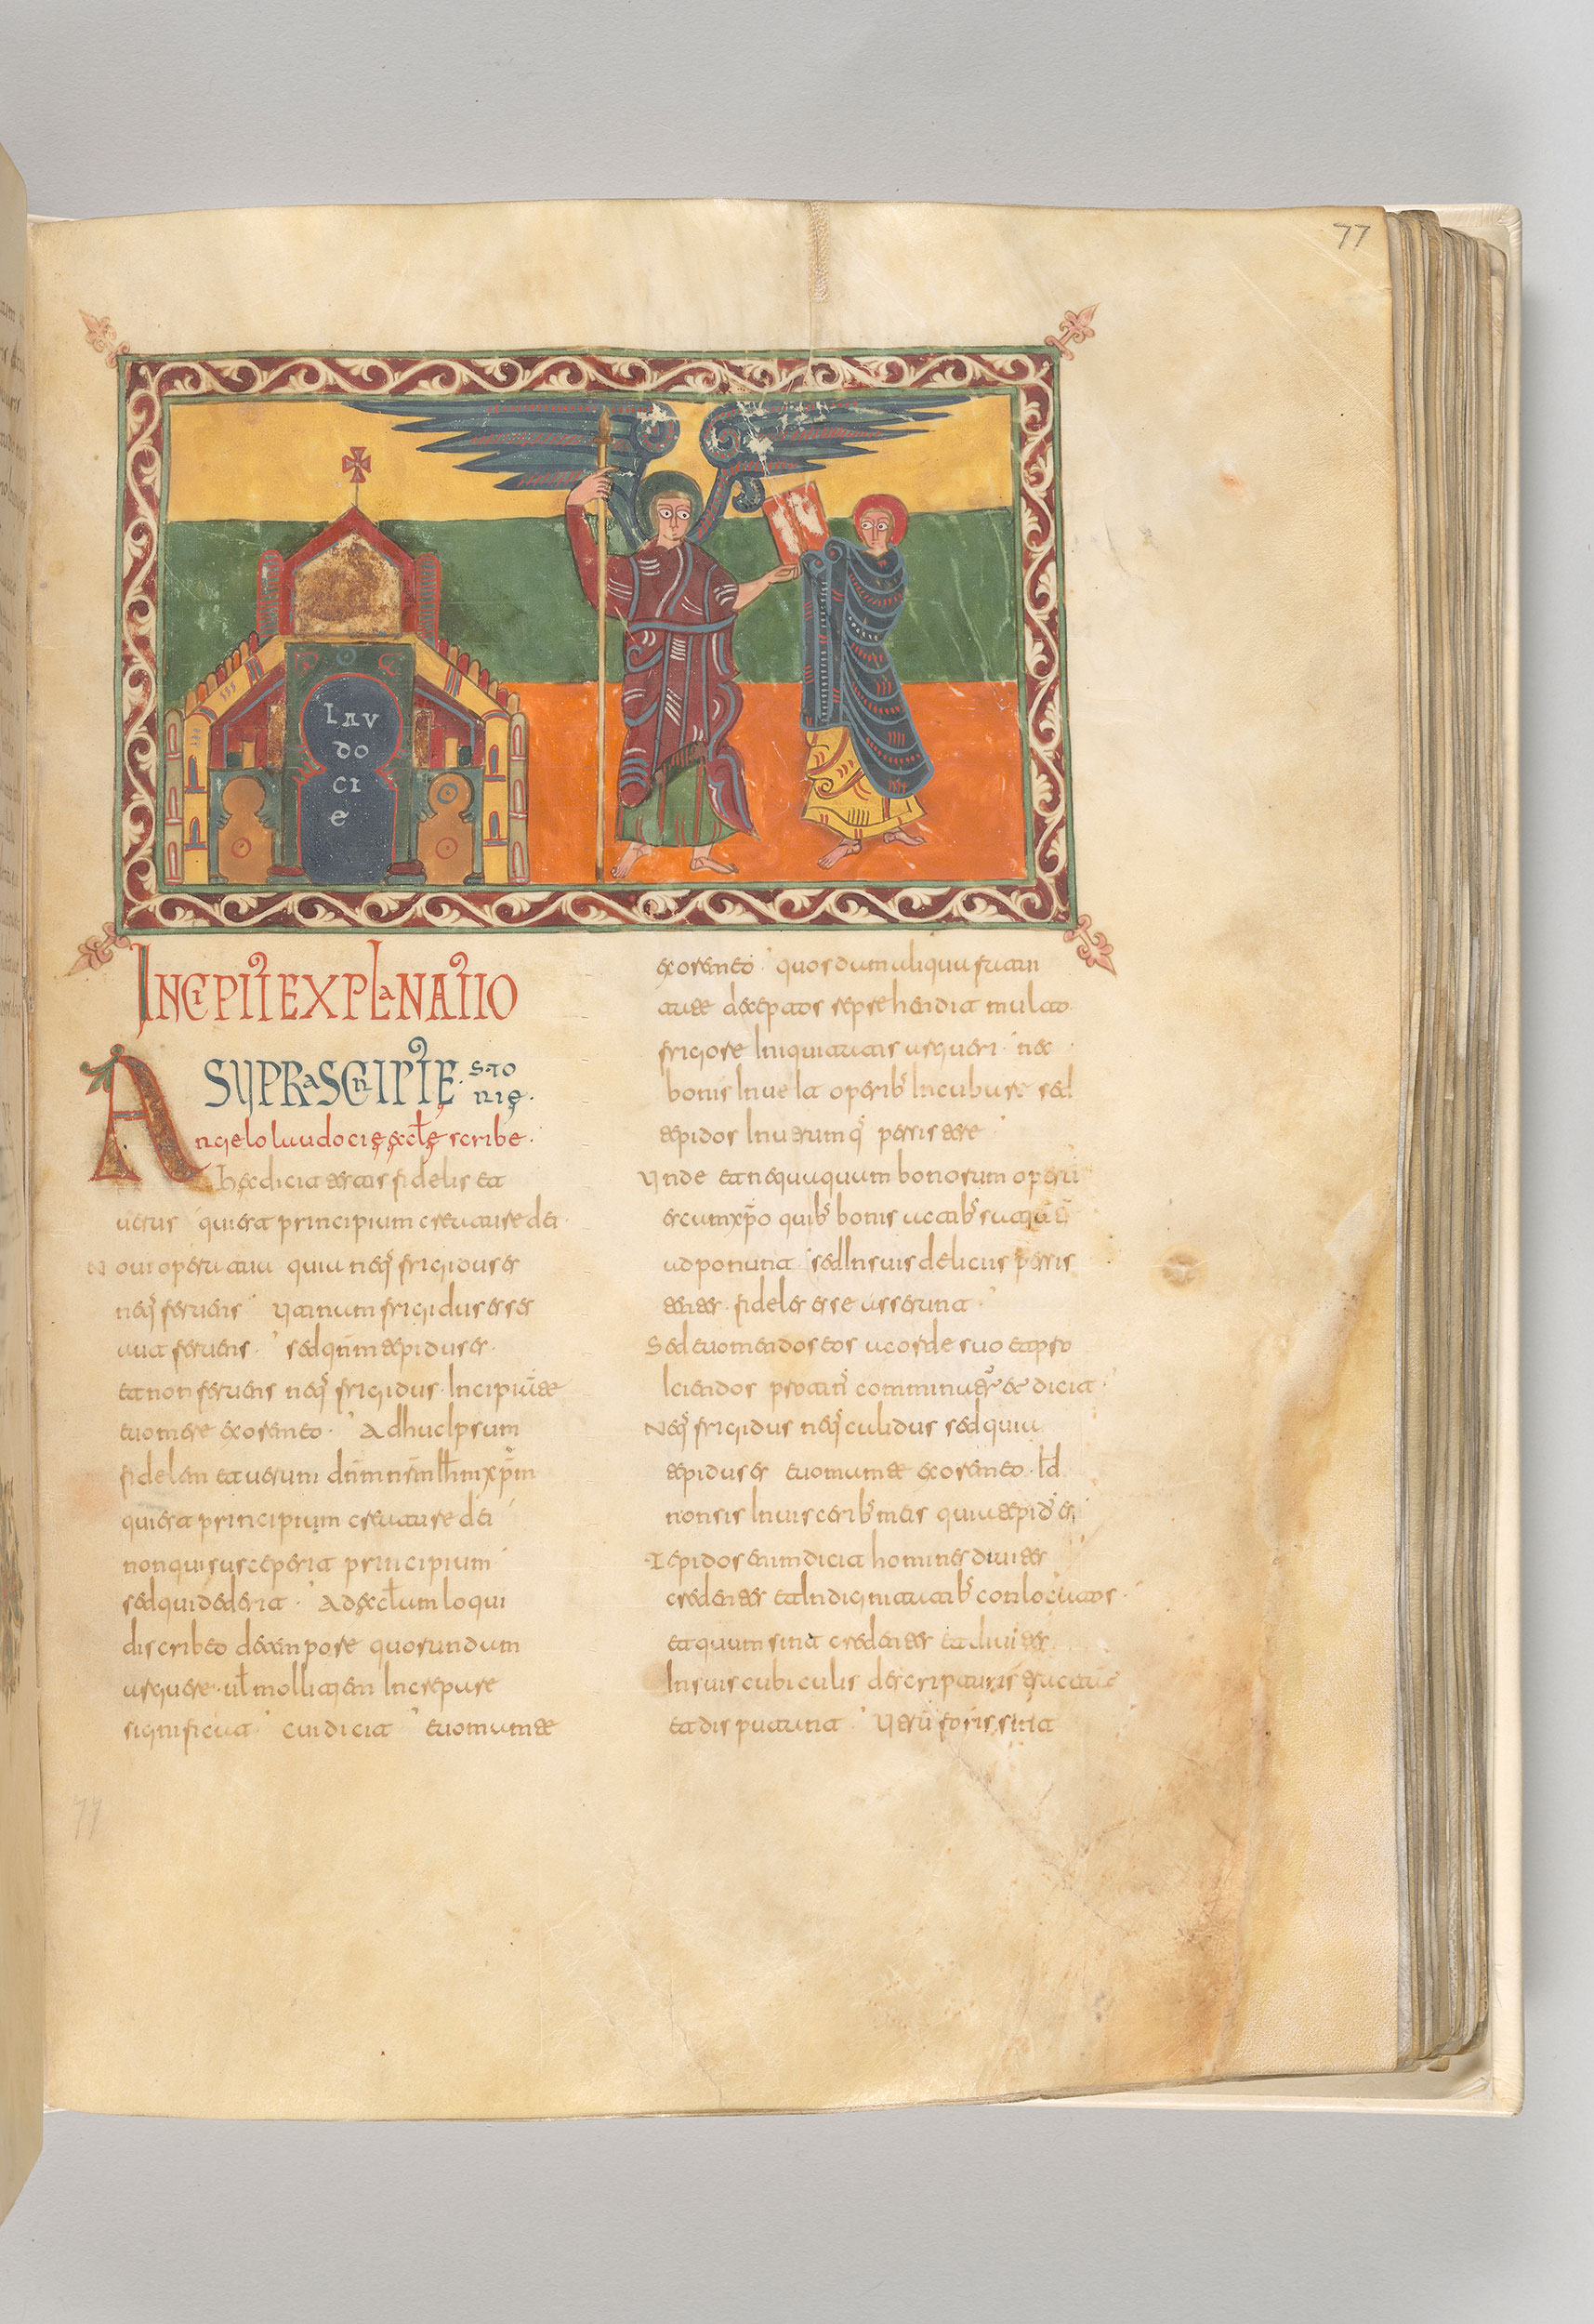 77
LAU
DO
CI
E
INCIPIT EXPLANATIO
SUPRA SCRIPTE STO
RIE.
Angelo laudocie eccle scribe.
Hec dicit testis fidelis et
uerus qui est principium creature dei
Noui opera tua quia neq frigidus es
neq feruens Utinam frigidus esses
aut feruens. sed qnm tepidus es.
et non feruens neq frigidus. Incipiā te
euomere ex ore meo. Adhuc Ipsum
fidelem et uerum dnm nsm Ihm xpm
qui est principium creature dei
non qui susceperit principium
sed qui dederit. Ad eclum loqui
discribto de tempore quorundam
urguere. ul mollitiem Increpare
significat cui dicit euomam te
ex ore meo. quos dum aliqua
deceptos reprehendit multo
frigore Iniquitatis urgueri nec
bonis In operib Incubare sed
tepidos In utrumq persistere
Unde et nequaquam bonorum operū
est cum xpo quib bonis
adponunt sed In suis deliciis persis
tentes. fideles esse asserunt.
Sed euomendos eos a corde suo et pro
Iciendos comminatur et dicit.
Neq frigidus neq calidus sed quia
tepidus es euomam te ex ore meo. Id
non sis In uisceribs meis quia tepidus es
Tepidos enim dicit homines diuites
credentes et In dignitatibs conlocatos.
et quum sint credentes et diuites
In suis cubiculis de scripturis
et disputant. Uerū foris sint
77